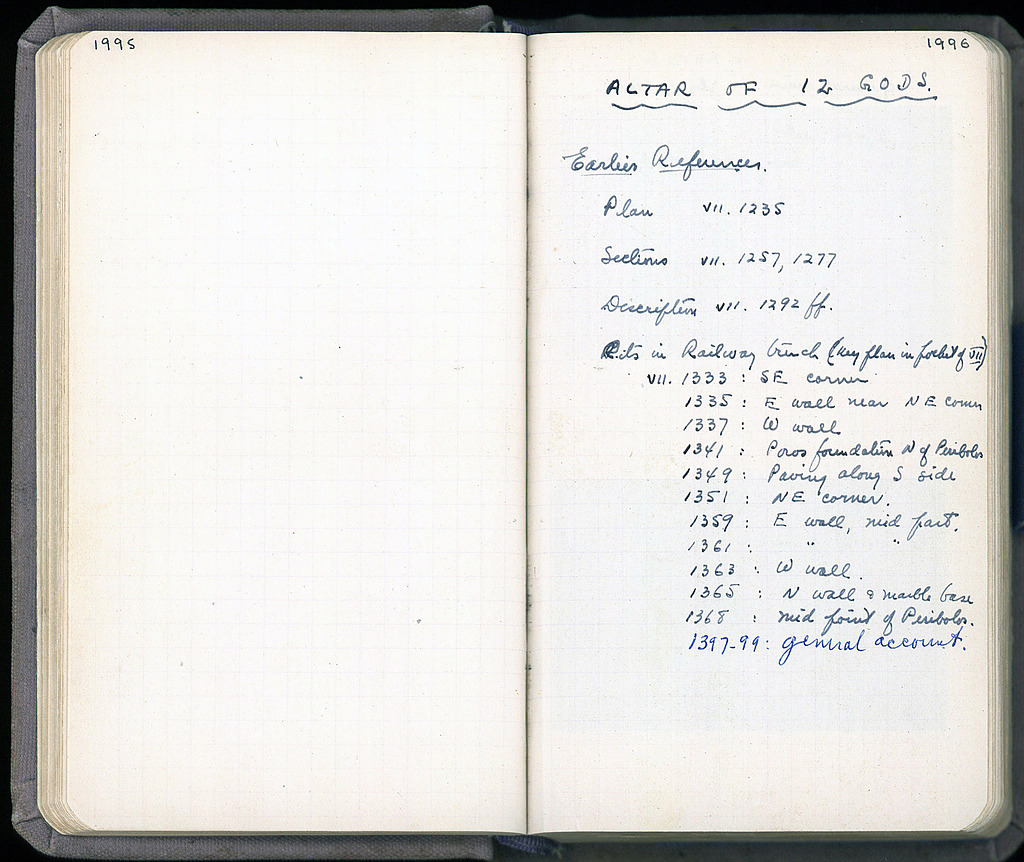 1995
1996
ALTAR OF 12 GODS.
Earlier References.
Plan VII. 1235
Sections VII. 1257, 1277
Description VII. 1292 ff.
Pits in Railway trench (key plan in pocket of VII)
VII. 1333 : SE corner
1335 : E wall near NE corner
1337 : W wall
1341 : Poros foundation N of Peribolos
1349 : Paving along S side
1351 : NE corner.
1359 : E wall, mid part.
1361 : " "
1363 : W wall.
1365 : N wall & marble base
1368 : mid point of Peribolos.
1397-99 : general account.